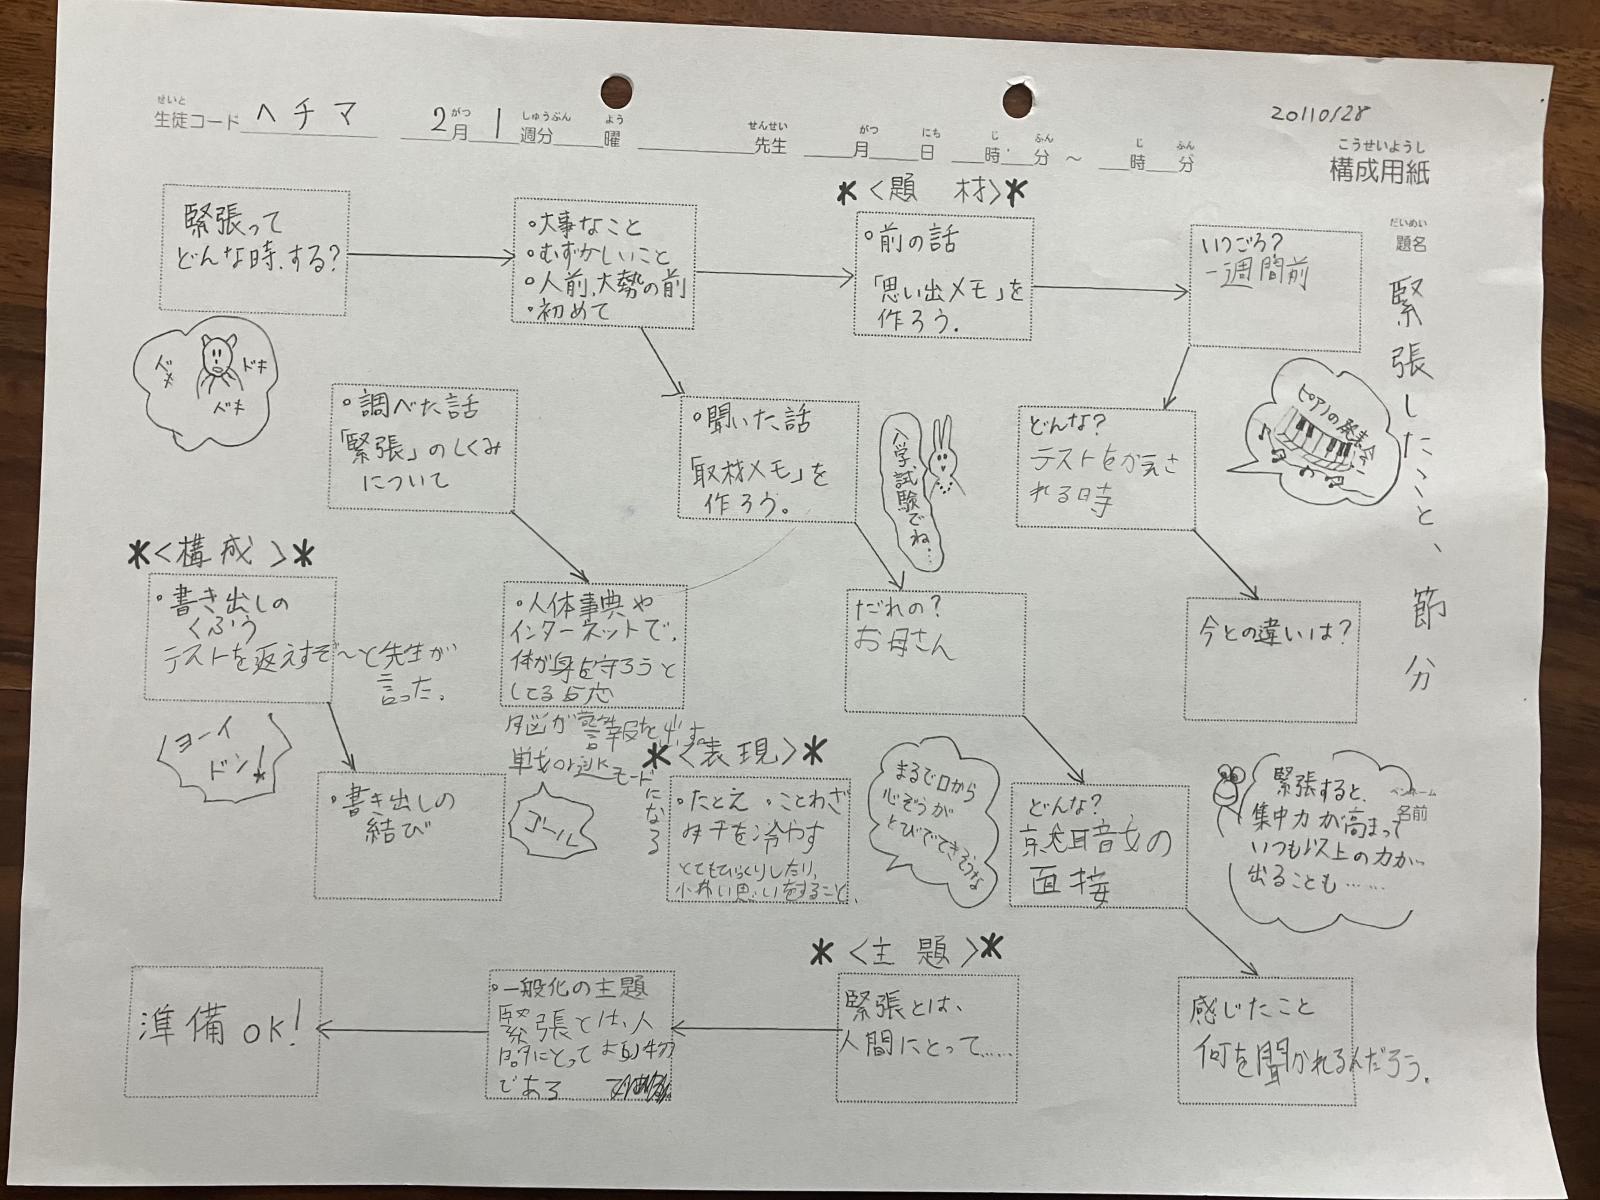 せいと
生徒コード ヘチマ
がつ しゅうぶん よう
2月 1週分 曜
せんせい
先生
がつ にち じ ふん じ ふん
月 日 時 分 ～ 時 分
201 10/28
こうせいようし
構成用紙
だいめい
題名
緊張したこと、節分
緊張って
どんな時、する?
ドキ
ドキ
ドキ
・大事なこと
・むずかしいこと
・人前、大勢の前
・初めて
*〈題 材〉*
・前の話
「思い出メモ」を
作ろう.
いつごろ?
一週間前
ピアノの発表会
どんな?
テストをかえさ
れる時
今との違いは?
・聞いた話
「取材メモ」を
作ろう。
入学試験でね…
だれの?
お母さん
どんな?
の
面接
まるで口から
心ぞうが
とびでてきそうな
感じたこと
何を聞かれるんだろう.
緊張すると、
集中力が高まって
いつも以上の力が…
出ることも……
ペンネーム
名前
・調べた話
「緊張」のしくみ
について
・人体事典や
インターネットで、
体が身を守ろうと
してる反応
脳が警報を出す。
戦 or 逃 モードになる
*〈構成〉*
・書き出しの
くふう
テストを返えすぞ〜と先生が
言った.
ヨーイ
ドン!
・書き出しの
結び
ゴール
*〈表現〉*
・たとえ ・ことわざ
肝を冷やす
とてもびっくりしたり、
小わい思いをすること、
*〈主 題〉*
緊張とは、
人間にとって……
・一般化の主題
緊張とは、人
間にとって
である
準備OK!